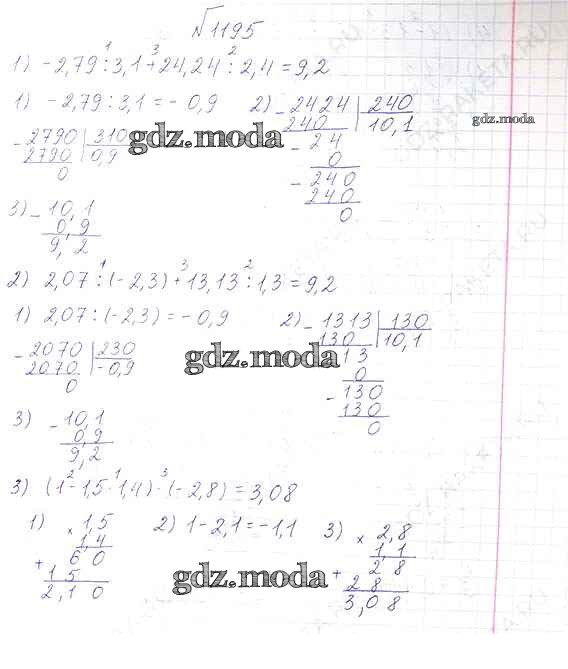 √1195
1) -2,79 : 3,1 + 24,24 : 2,4 = 9,2
1) -2,79 : 3,1 = - 0,9   2) - 2424 | 240
- 2790 | 310   240   10,1
2790 | 0,9   - 24
0   0
- 240
240
0
gdz.moda
gdz.moda
3) - 10,1
0,9
9,2
2) 2,07 : (-2,3) + 13,13 : 1,3 = 9,2
1) 2,07 : (-2,3) = -0,9   2) - 1313 | 130
- 2070 | 230   130   10,1
2070 | -0,9   13
0   0
- 130
130
0
gdz.moda
3) - 10,1
0,9
9,2
3) (1 - 1,5 · 1,4) · (-2,8) = 3,08
1) × 1,5   2) 1 - 2,1 = -1,1   3) × 2,8
1,4   1,1
+ 60   + 28
15   28
2,10   3,08
gdz.moda